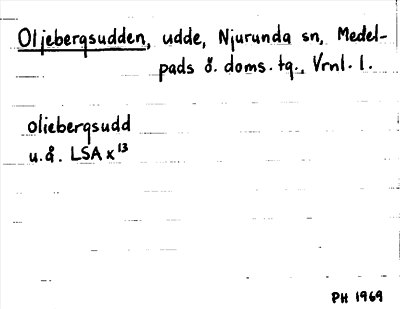 Oljebergsudden, udde, Njurunda sn, Medel-
pads ö. doms. tg., Vrnl. l.
oliebergsudd
u.å. LSA x¹³
PH 1969